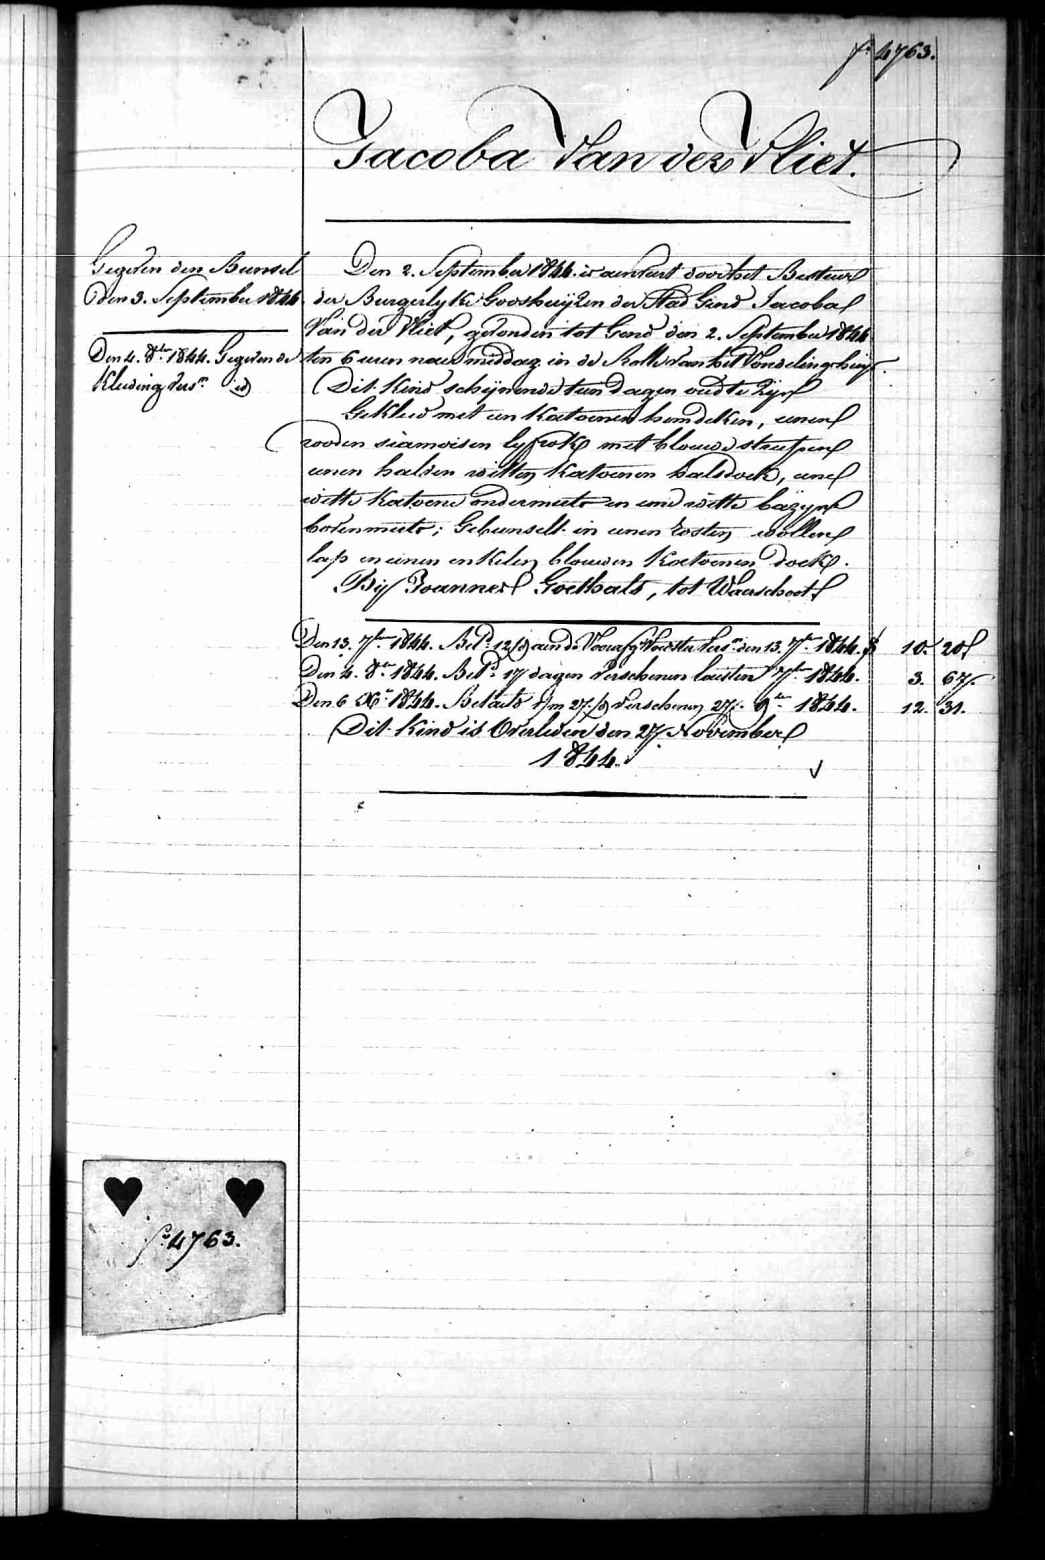 f° 4763.
Jacoba Van der Vliet.
Gegeven den Bunsel
Den 3. September 1844.
Den 4. 8bre 1844. Gegeven de
Kleding
Den 2. September 1844. is aenveert door het Bestuer
der Burgerlyke Godshuyzen der Stad Gend Jacoba
Van der Vliet, gevonden tot Gend den 2. September 1844
ten 6 uren naermiddag in de Rolle van het Vondelinghuys.
Dit Kind schynende tien dagen oud te zyn
Gekleed met een Katoenen hemdeken, eenen
rooden siamoisen lyfrok met blouwe streepen
eenen halven witten Katoenen halsdoek, eene
witte Katoene ondermuts en eene witte bazyne
bovenmuts; Gebunselt in eenen rosten wollen
lap en eenen enkelen blouwen Katoenen doek.
Bij Joannes Goethals, tot Waerschoot
Den 13. 7bre 1844. Betd. 12 den 13. 7bre 1844. 10. 20
Den 4. 8bre 1844. Betd. 17 dagen verschenen laesten 7bre 1844. 3. 67.
Den 6 Xbre 1844. Betaelt verschenen 27. 9bre 1844. 12. 31.
Dit Kind is Overleden den 27 November
1844.
f° 4763.